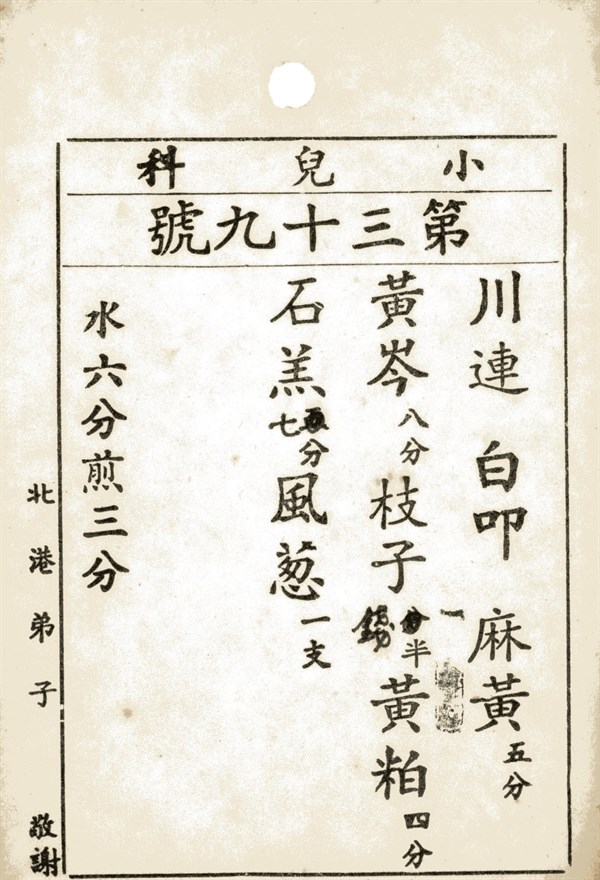 小兒科
第三十九號
川連 白叩 麻黃五分
黃岑八分枝子一錢半黃粕四分
石羔七分風葱一支
水六分煎三分
北港弟子 敬謝